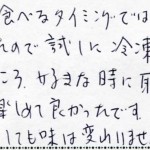 食べるタイミングでは
んので試しに冷凍
ころ、好きな時に
楽しめて良かったです。
しても味は変わりませ